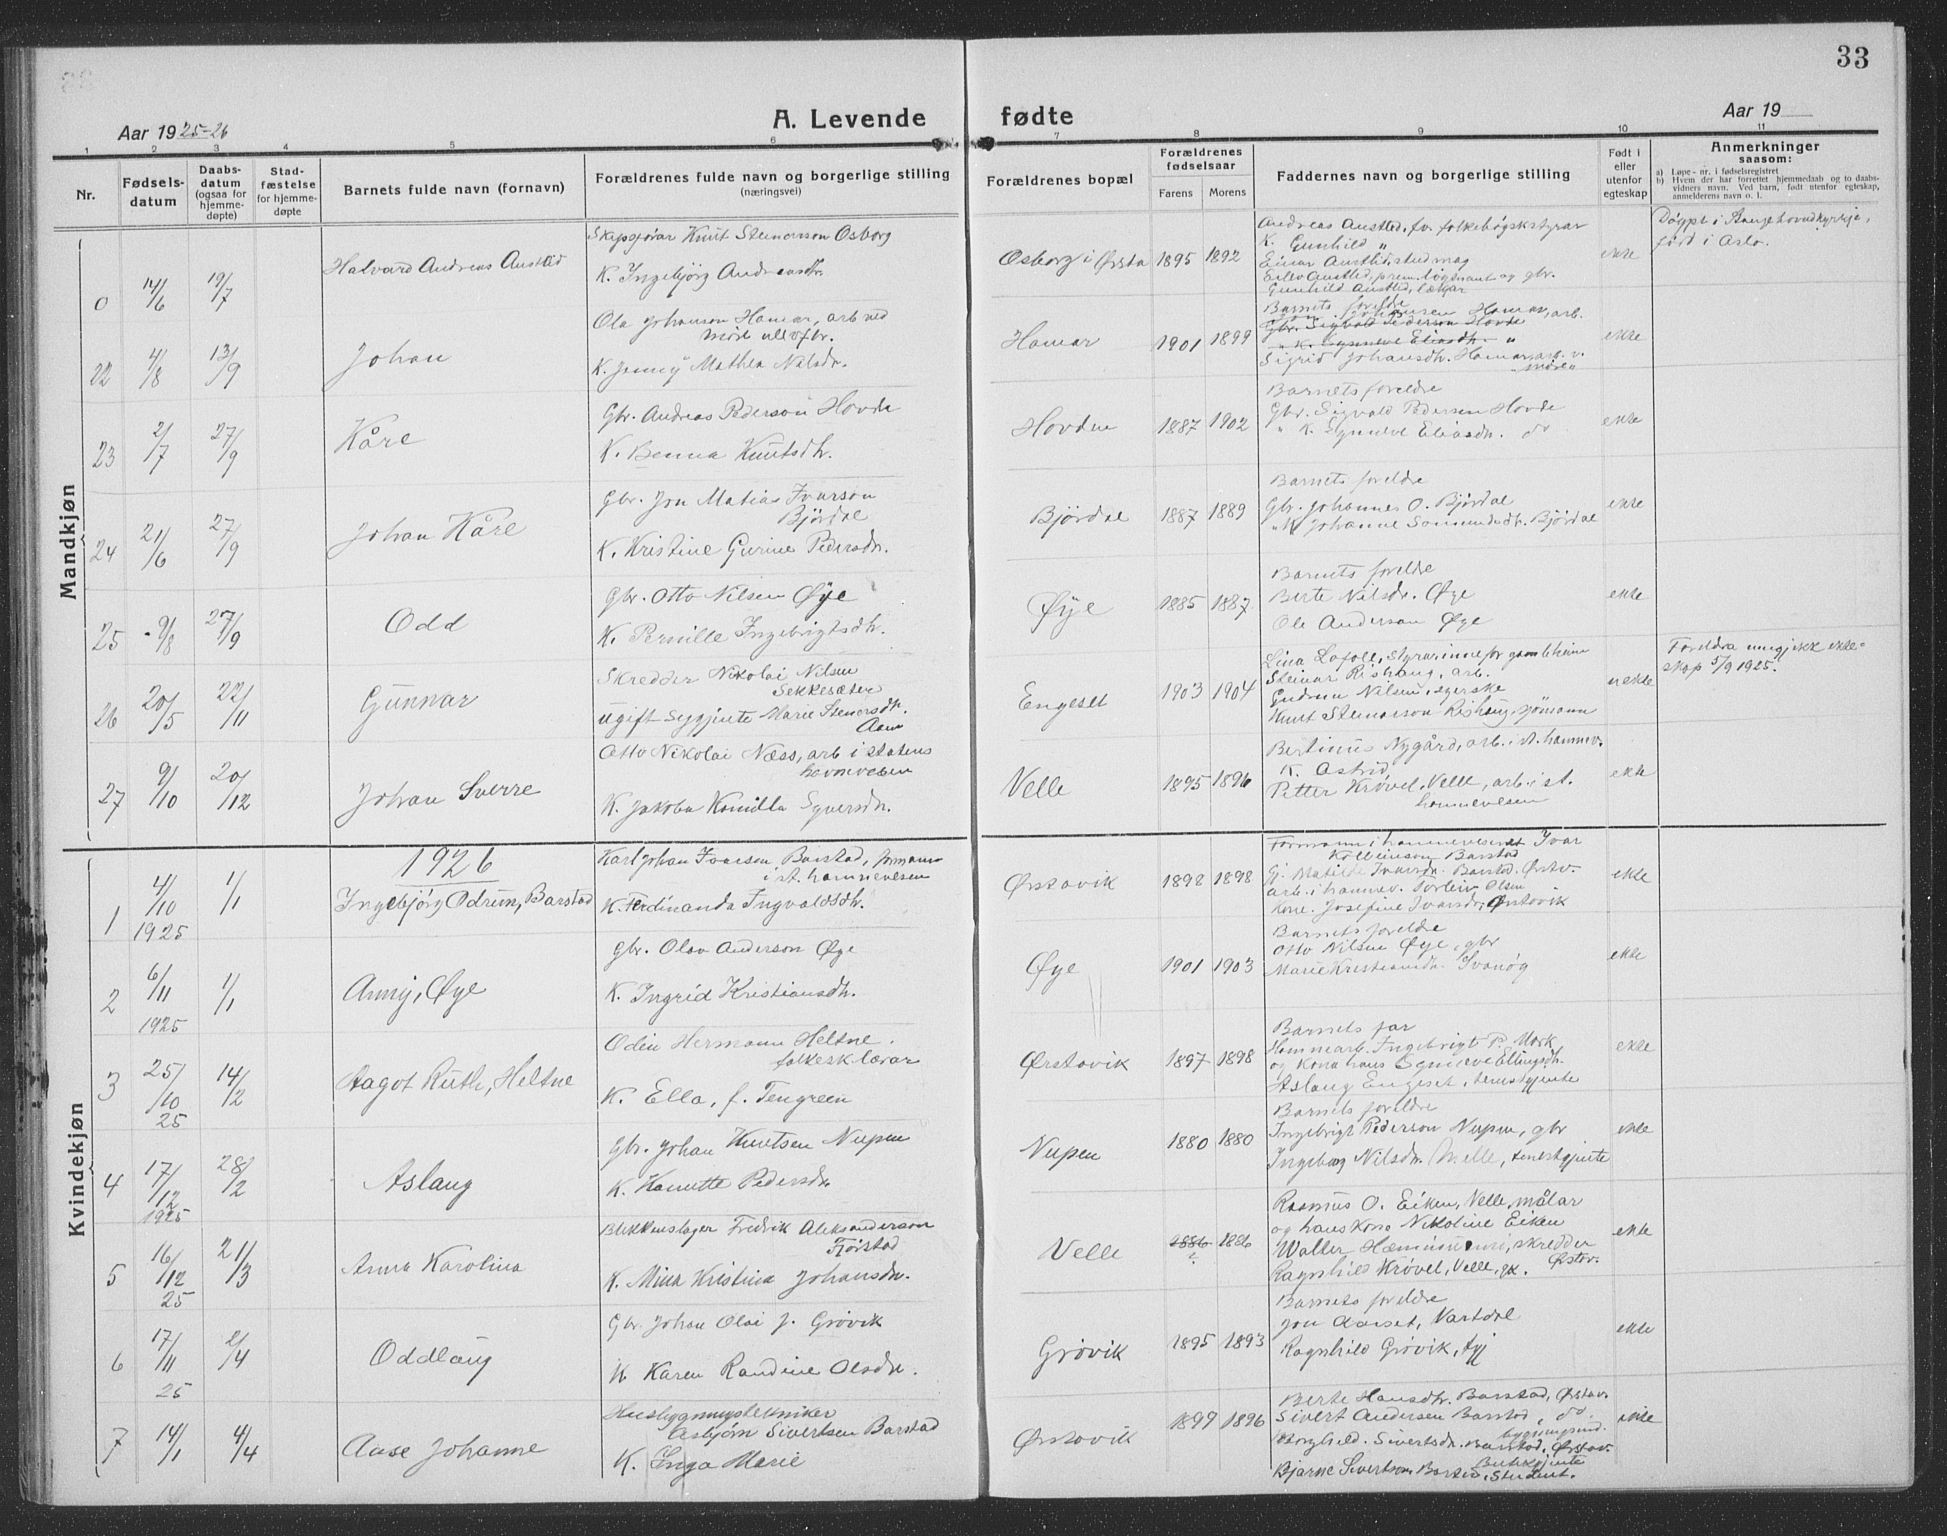 33
A. Levende fødte
Aar 1925-26
Aar 19
1 2 3 4 5 6 7 8 9 10 11
Nr.
Fødselsdatum
Daabsdatum (ogsaa for hjemmedøpte)
Stadfæstelse for hjemmedøpte
Barnets fulde navn (fornavn)
Forældrenes fulde navn og borgerlige stilling
(næringsvei)
Forældrenes bopæl
Forældrenes fødselsaar
Farens Morens
Faddernes navn og borgerlig stilling
Født i eller utenfor egteskap
Anmerkninger
saasom:
a) Løpe-nr. i fødselsregistret
b) Hvem der har forrettet hjemmedaab og to daabsvidners navn. Ved barn, født utenfor egteskap, anmelderens navn o. l.
Mandkjøn
0 14/6 19/7 Halvard Andreas Austad
Skipsførar Knut Steinarson Osborg
K. Ingebjørg Andreasdtr.
Osborg i Ørsta 1895 1892
Andreas Austlid, fv. folkehøgskstyrar
K. Gunhild "
Einar Austlid, stud mag
Eilev Austlid, prem.løgtnant og gbr.
Gunhild Austlid, lækjar
ekte
Døypt i Stange hovudkyrkje,
fød i Oslo.
22 4/8 13/9 Johan
Ola Johanson Hamar, arb ved
Møre ullvfbr.
K. Jenny Mathea Nilsdr.
Hamar 1901 1899
Barnets foreldre
Jon Johansen Hamar, arb.
Gbr. Sigvald Pederson Hovde
" K. Synneve Eliasdh. "
Sigrid Johansdh. Hamar, arb. v.
"Møre"
ekte
23 2/7 27/9 Kåre
Gbr. Andreas Pederson Hovde
K. Benna Knutsdh.
Hovdne 1887 1902
Barnets foreldre
Gbr. Sigvald Pedersen Hovde
" K. Synneve Eliasdh. do
ekte
24 21/6 27/9 Johan Kåre
Gbr. Jon Matias Ivarson
Bjørdal
K. Kristine Gurine Pedersdr.
Bjørdal 1887 1889
Barnets foreldre
Gbr. Johannes O. Bjørdal
" K Johanne Sammundsdh. Bjørdal
ekte
25 9/8 27/9 Odd
Gbr. Otto Nilsen Øye
K. Pernille Ingebrigtsdh.
Øye 1885 1887
Barnets foreldre
Berte Nilsdr. Øye
Ole Anderson Øye
ekte
26 20/5 22/11 Gunnar
Skredder Nikolai Nilsen
Sekkesæter
Ugift Sygjente Marie Steinersdh.
Aam
Engeset 1903 1904
Lina Lofoll, styrarinne for gamleheim
Steinar Rishaug, arb.
Gudrun Nilsen, syerske
Knut Steinarson Rishaug, sjømann
uekte
Foreldra inngjekk ekteskap 5/9 1925.
27 9/10 20/12 Johan Sverre
Otto Nikolai Næss, arb i statens
havnevesen
K. Jakoba Kamilla Syversdr.
Velle 1895 1896
Bertinus Nygård, arb. i st. hamnev.
K. Astrid
Petter Krøvel, Velle, arb. i st.
hamnevesen
ekte
Kvindekjøn
1926
1 4/10 1925 1/1 Ingebjørg Odrun, Barstad
Karl Johan Ivarson Barstad, formann
i st. hamnevesen
K. Ferdinanda Ingvaldsdh.
Ørstavik 1898 1898
Formann i hamnevesenet Ivar
Kolbeinson Barstad
Gj. Matilde Ivarsdr. Barstad. Ørstv.
arb. i hamnev. Torleiv Olsen
Kone. Josefine Ivarsdr. Ørstavik
ekte
2 6/11 1925 1/1 Anny, Øye
Gbr. Olav Anderson Øye
K. Ingrid Kristiansdh.
Øye 1901 1903
Barnets foreldre
Otto Nilsen Øye, gbr
Marie Kristiansdh. Ivanøg
ekte
3 25/10 25 14/2 Aagot Ruth, Heltne
Odin Hermann Heltne.
folkesk.lærar
K. Ella, f. Tengreen
Ørstavik 1897 1898
Barnets far
Hamnearb. Ingebrigt P. Mork,
og kona hans Synneve Ellingsdh.
Aslaug Engeset, tenestgjente
ekte
4 17/12 1925 28/2 Aslaug
Gbr. Johan Knutsen Nupen
K. Hanette Pedersdr
Nupen 1880 1880
Barnets foreldre
Ingebrigt Pederson Nupen, gbr
Ingeborg Nilsdr. Melle, tenestgjente
ekte
5 16/12 25 21/3 Anna Karolina
Blikkenslager Fredrik Aleksanderson
Fjørstad
K. Mina Kristina Johansdr.
Velle 1886 ? 1886
Rasmus O. Eiken, Velle, målar
og hans kone Nikoline Eiken
Walter, skredder
Ørstav.
Ragnhild Krøvel, Velle, gk.
ekte
6 17/11 25 2/4 Oddlaug
Gbr Johan Olai J. Grøvik
K Karen Randine Olsdr.
Grøvik 1895 1893
Barnets foreldre
Jon Aarset, Vartdal
Ragnhild Grøvik,
ekte
7 14/1 4/4 Aase Johanne
Husbygningstekniker
Asbjørn Sivertsen Barstad
K. Inga Marie
Ørstavik 1899 1896
Berte Hansdh. Barstad, Ørstav.
Sivert Andersen Barstad, do.
bygningsmd.
Borghild. Sivertsdr. Barstad. Ørstav.
Butikgjente
Bjarne Sivertson Barstad, student.
ekte